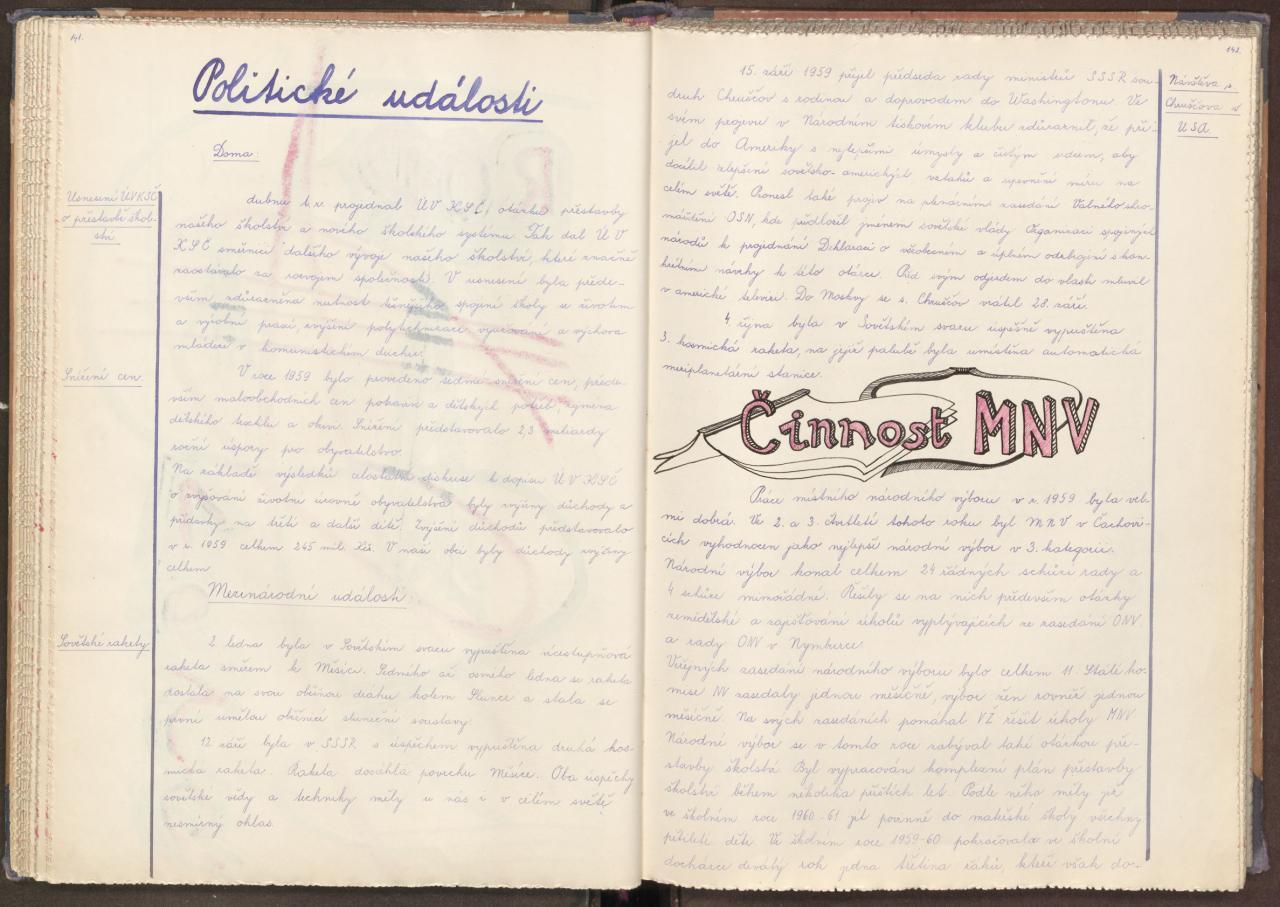 141.
Politické události
Doma:
Usnesení ÚV KSČ
o přestavbě škol-
ství
dubnu t.r. projednal ÚV KSČ otázku přestavby
našeho školství a nového školského systému. Tak dal ÚV
KSČ směrnici dalšího vývoje našeho školství, které značně
zaostávalo za rozvojem společnosti. V usnesení byla přede-
vším zdůrazněna nutnost těsnějšího spojení školy se životem
a výrobní praxí, zvýšení polytechnizace vyučování a výchova
mládeže v komunistickém duchu.
Snížení cen.
V roce 1959 bylo provedeno sedmé snížení cen, přede-
vším maloobchodních cen potravin a dětských potřeb, zejména
dětského textilu a obuvi. Snížení představovalo 2,3 miliardy
roční úspory pro obyvatelstvo.
Na základě výsledků celostátní diskuse k dopisu ÚV KSČ
o zvyšování životní úrovně obyvatelstva byly zvýšeny důchody a
přídavky na třetí a další dítě. Zvýšení důchodů představovalo
v r. 1959 celkem 245 mil. Kčs. V naší obci byly důchody zvýšeny
celkem
Mezinárodní události:
Sovětské rakety
2. ledna byla v Sovětském svazu vypuštěna vícestupňová
raketa směrem k Měsíci. Sedmého až osmého ledna se raketa
dostala na svou oběžnou dráhu kolem Slunce a stala se
první umělou oběžnicí sluneční soustavy.
12. září byla v SSSR s úspěchem vypuštěna druhá kos-
mická raketa. Raketa dosáhla povrchu Měsíce. Oba úspěchy
sovětské vědy a techniky měly u nás i v celém světě
nesmírný ohlas.
142.
Návštěva s.
Chruščova v
USA.
15. září 1959 přijel předseda rady ministrů SSSR sou-
druh Chruščov s rodinou a doprovodem do Washingtonu. Ve
svém projevu v Národním tiskovém klubu zdůraznil, že při-
jel do Ameriky s nejlepšími úmysly a čistým srdcem, aby
docílil zlepšení sovětsko-amerických vztahů a upevnění míru na
celém světě. Pronesl také projev na plenárním zasedání Valného shro-
máždění OSN, kde předložil jménem sovětské vlády Organizaci spojených
národů k projednání Deklaraci o všeobecném a úplném odzbrojení s kon-
krétními návrhy k této otázce. Před svým odjezdem do vlasti mluvil
v americké televizi. Do Moskvy se s. Chruščov vrátil 28. září.
4. října byla v Sovětském svazu úspěšně vypuštěna
3. kosmická raketa, na jejíž palubě byla umístěna automatická
meziplanetární stanice.
Činnost MNV
Práce místního národního výboru v r. 1959 byla vel-
mi dobrá. Ve 2. a 3. čtvrtletí tohoto roku byl MNV v Čachovi-
cích vyhodnocen jako nejlepší národní výbor v 3. kategorii.
Národní výbor konal celkem 24 řádných schůzí rady a
4 schůze mimořádné. Řešily se na nich především otázky
zemědělské a zajišťování úkolů vyplývajících ze zasedání ONV
a rady ONV v Nymburce.
Veřejných zasedání národního výboru bylo celkem 11. Stálé ko-
mise NV zasedaly jednou měsíčně, výbor žen rovněž jednou
měsíčně. Na svých zasedáních pomáhal VŽ řešit úkoly MNV.
Národní výbor se v tomto roce zabýval také otázkou pře-
stavby školství. Byl vypracován komplexní plán přestavby
školství během několika příštích let. Podle něho měly již
ve školním roce 1960-61 jít povinně do mateřské školy všechny
pětileté děti. Ve školním roce 1959-60 pokračovala ve školní
docházce devátý rok jedna třetina žáků, kteří však do-